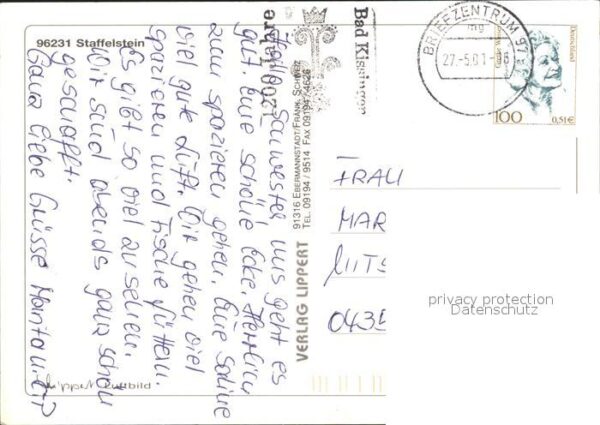 96231 Staffelstein
Schwester uns geht es
gut. Eine schöne Ecke. Herrlich
zum spazieren gehen. Eine Schöne
viel gute Luft. Wir gehen viel
spazieren und Fische füttern.
Es gibt so viel zu sehen.
Wir sind abends ganz schön
geschafft.
Ganz liebe Grüsse
Luftbild
VERLAG LIPPERT
91316 EBERMANNSTADT/FRÄNK. SCHWEIZ
TEL. 09194 / 9514 FAX 09194/4626
1200 Jahre
Bad Kissingen
BRIEFZENTRUM 97
mg
27.-5.01-
Deutschland
100
0,51€
FRAU
MAR
0435
privacy protection
Datenschutz